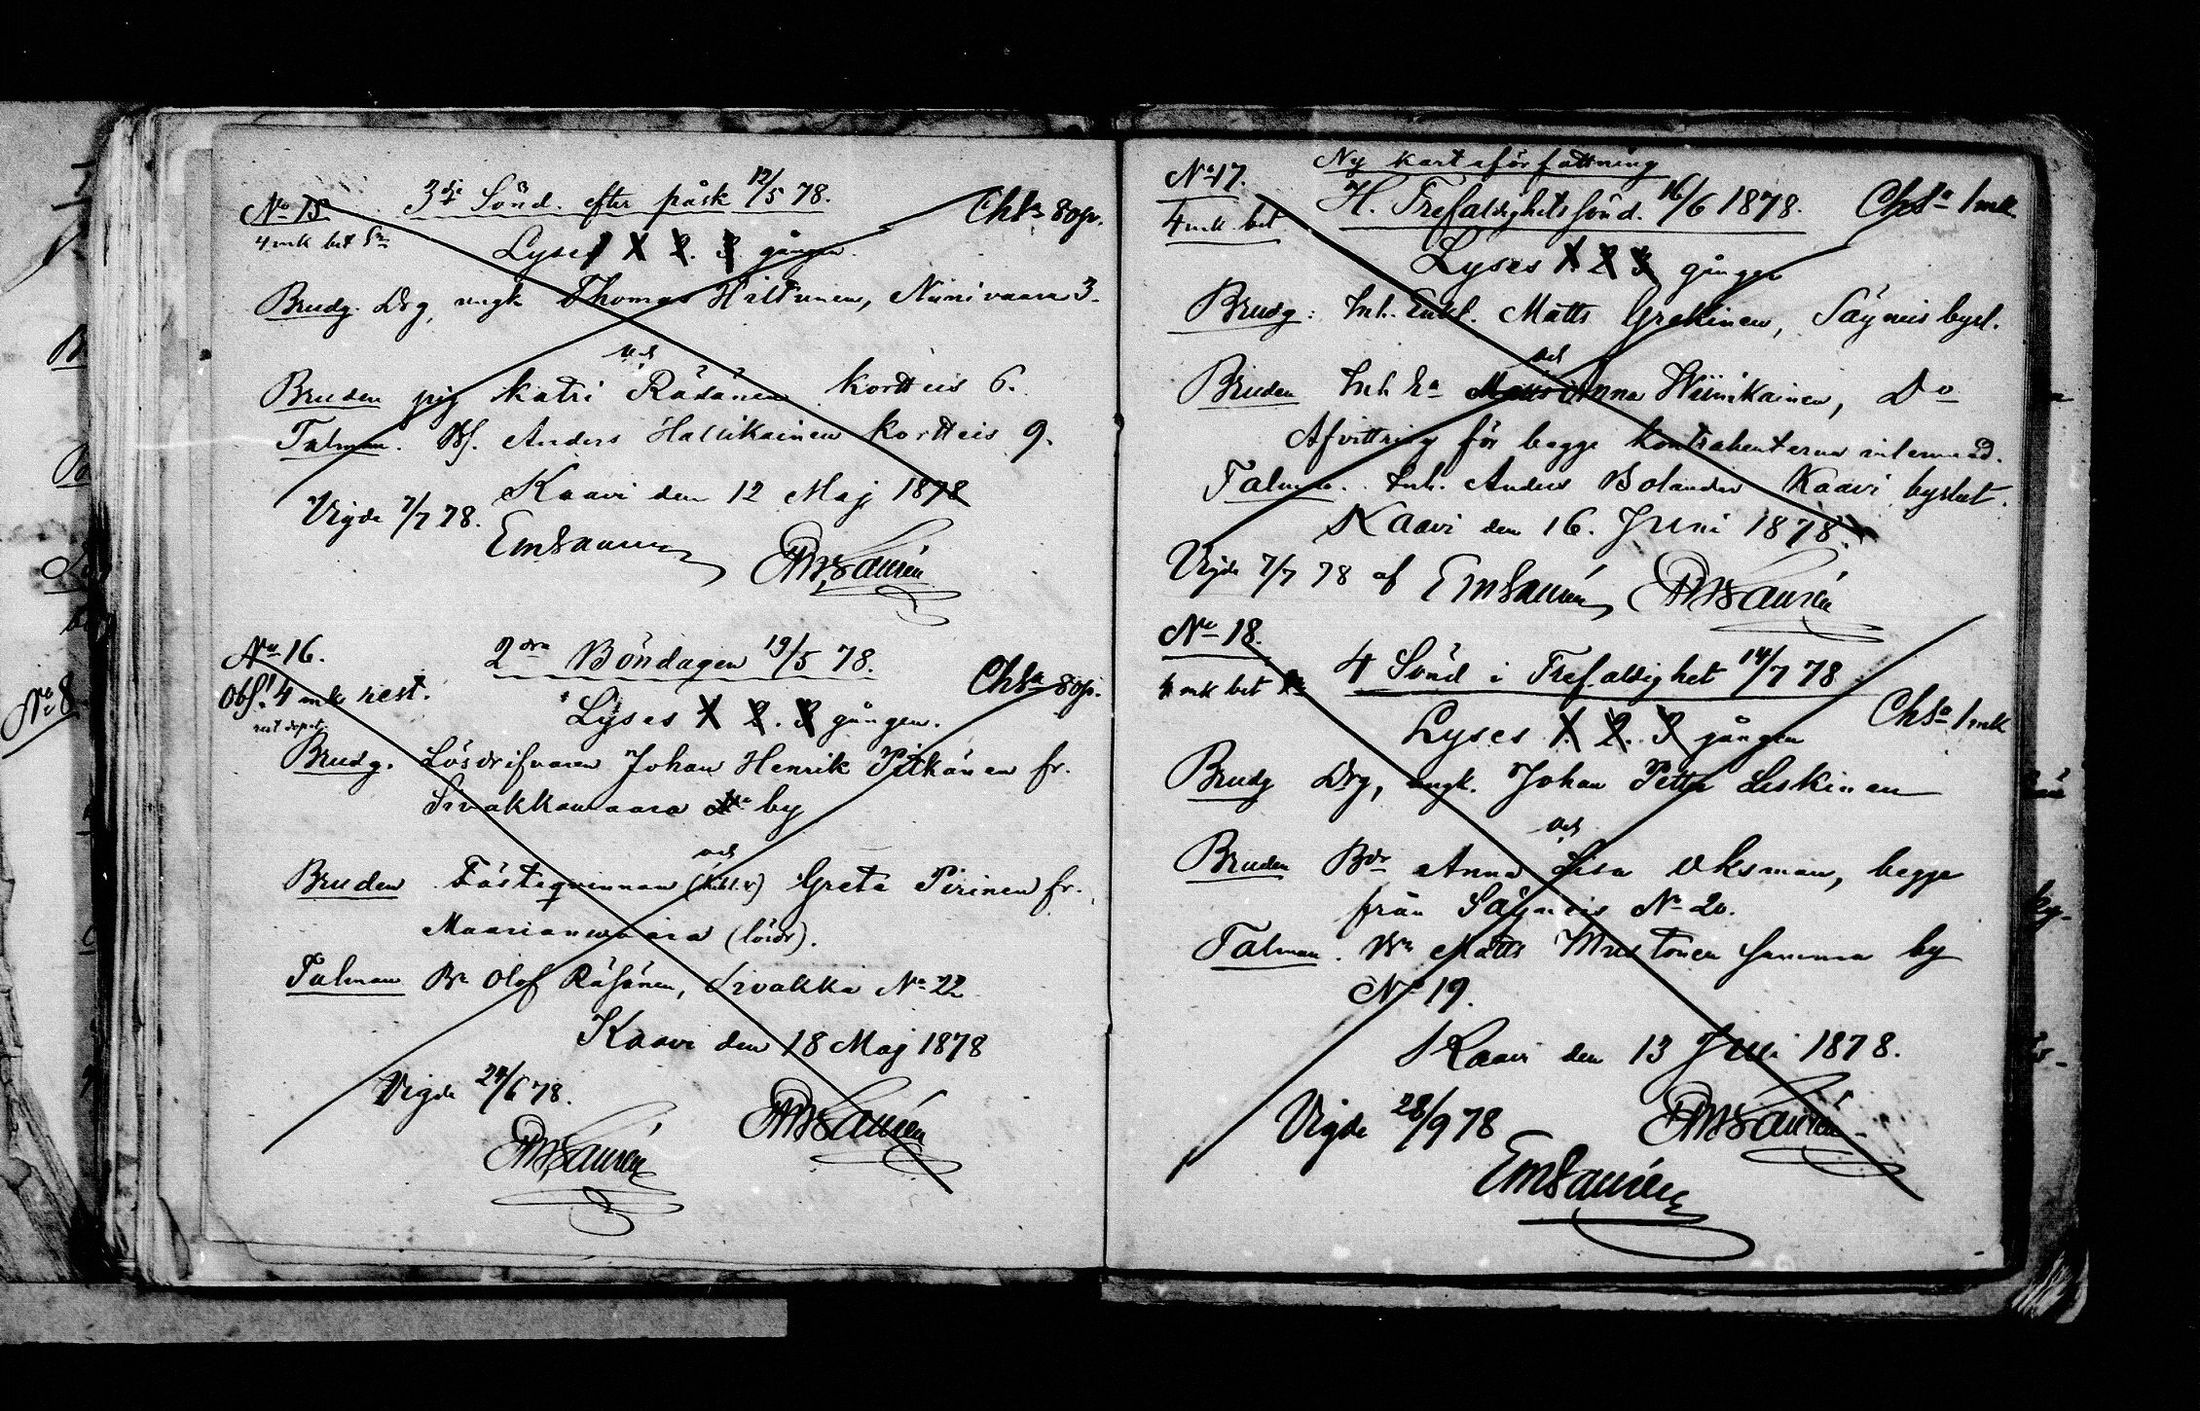 No 15
3dje Sönd. efter påsk 12/5 78.
Chsa 80p.
4 mk bet
Lyses 1 2. 3. gången.
Brudg. Drg, ungk Thomas Hiltunen, Niinivaara 3.
med
Bruden pig Katri Räsänen Kortteis 6.
Talman. Anders Hallikainen Kortteis 9.
Kaavi den 12 Maj 1878
Vigde 7/7 78.
EmSaurén
No 16.
2dra Böndagen 19/5 78.
Obs! 4 mk rest.
Chsa 80p.
Lyses 1 2. 3 gången.
Brudg. Lösdrifvaren Johan Henrik Pitkänen fr.
Sivakkavaara by
med
Bruden Fästeqvinnan Greta Pirinen fr.
Maarianvaara (lösdr).
Talman Bn Olof Räsänen, Sivakka No 22
Kaavi den 18 Maj 1878
Vigde 24/6 78.
No 17.
Ny kartaförfattning
H. Trefaldighets sönd. 16/6 1878.
Chsa 1 mk
4 mk bet
Lyses 1 2 3 gången
Brudg: Inh. Enkl. Matts Grekinen, Säyneis bysl.
med
Bruden Inh Ea Anna Wiinikainen, Do
Afvittring för begge kontrahenterna
Talman. Inh. Anders Bolander Kaavi byslut.
Kaavi den 16. Juni 1878.
Vigde 7/7 78 af EmSaurén
No 18.
4 Sönd i Trefaldighet 14/7 78
4 mk bet
Chsa 1 mk
Lyses 1. 2. 3 gången
Brudg Drg, ungk. Johan Petter Leskinen
med
Bruden Bdr Anna Lisa Oksman, begge
från Säyneis No 20.
Talman. Bn Matts Mustonen samma by
No 19.
Kaavi den 13 Juli 1878.
Vigde 28/9 78
EmSaurén
No 8